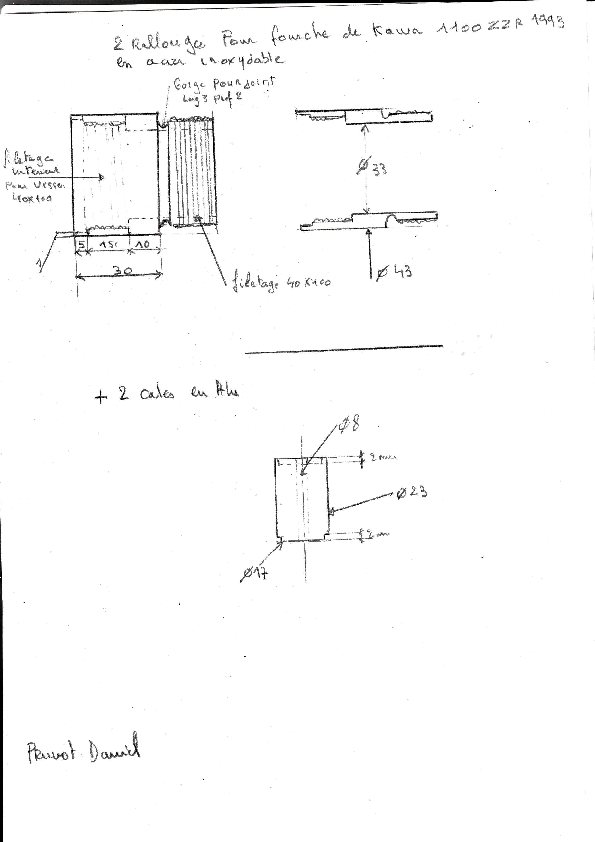 2 Rallonge Pour fourche de Kawa 1100 ZZR 1993
en acier inoxydable
Gorge pour joint
Larg 3 Prof 2
filetage
interieur
pour visser
40x100
Ø 33
1
5
15
10
30
filetage 40x100
Ø 43
+ 2 cales en Alu
Ø8
2 mm
Ø 23
2 m
Ø17
Daniel